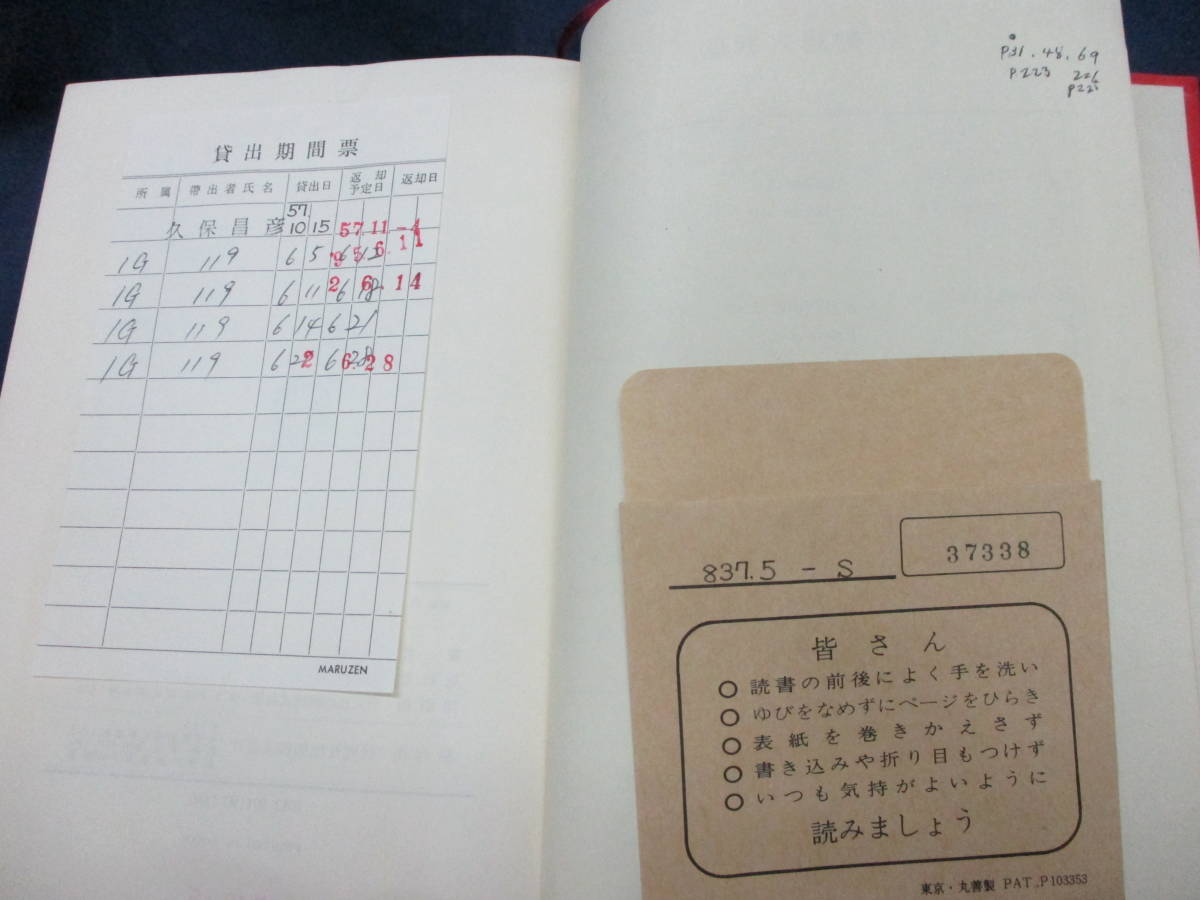 貸出期間票
所属 帶出者氏名 貸出日 返却予定日 返却日
久保昌彦 57 10 15 57.11-4
1G 119 6 5 6 12
1G 119 6 11 6 18 2 6.14
1G 119 6 14 6 21
1G 119 6 28 6.28
MARUZEN
P31.48.69
P.223 226
837.5 - S
37338
皆さん
○ 読書の前後によく手を洗い
○ ゆびをなめずにページをひらき
○ 表紙を巻きかえさず
○ 書き込みや折り目もつけず
○ いつも気持がよいように
読みましょう
東京・丸善製 PAT.,P103353